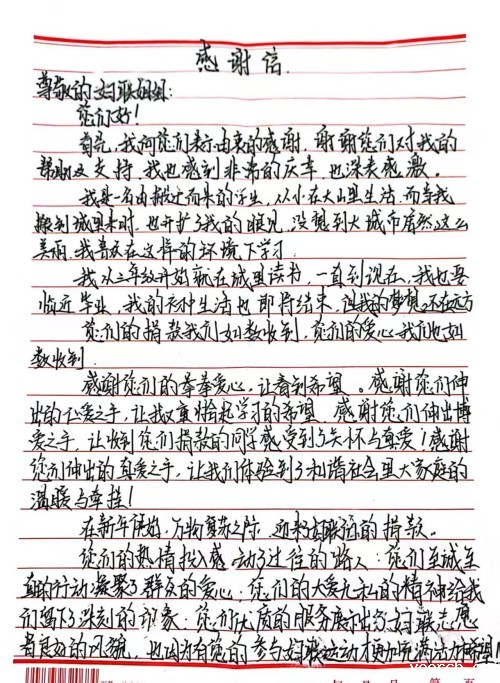 感谢信.
尊敬的妇联姐姐:
您们好!
首先,我向您们表示由衷的感谢,谢谢您们对我的
帮助及支持,我也感到非常的庆幸,也深表感激。
我是一名由搬迁而来的学生,从小在大山里生活,而当我
搬到城里来时,也开扩了我的眼见,没想到大城市居然这么
美丽,我喜欢在这样的环境下学习.
我从三年级开始就在城里读书,一直到现在,我也要
临近毕业,我的初中生活也即将结束,但我的梦想还在远方
您们的捐款我们如数收到,您们的爱心我们也如
数收到.
感谢您们的拳拳爱心,让看到希望。感谢您们伸
出的仁爱之手,让我又重拾起学习的希望,感谢您们伸出博
爱之手,让收到您们捐款的同学感受到了关怀与真爱!感谢
您们伸出的真爱之手,让我们体验到了和谐社会里大家庭的
温暖与牵挂!
在新年伊始,万物复苏之际,迎来妇联组的捐款.
您们的热情投入感动了过往的路人;您们至诚至
真的行动凝聚了群众的爱心;您们的大爱无私的精神给我
们留下了深刻的印象;您们优质的服务展示出了妇联志愿
者良好的风貌,也因为有您的参与妇联运动才更加充满活力和希望!